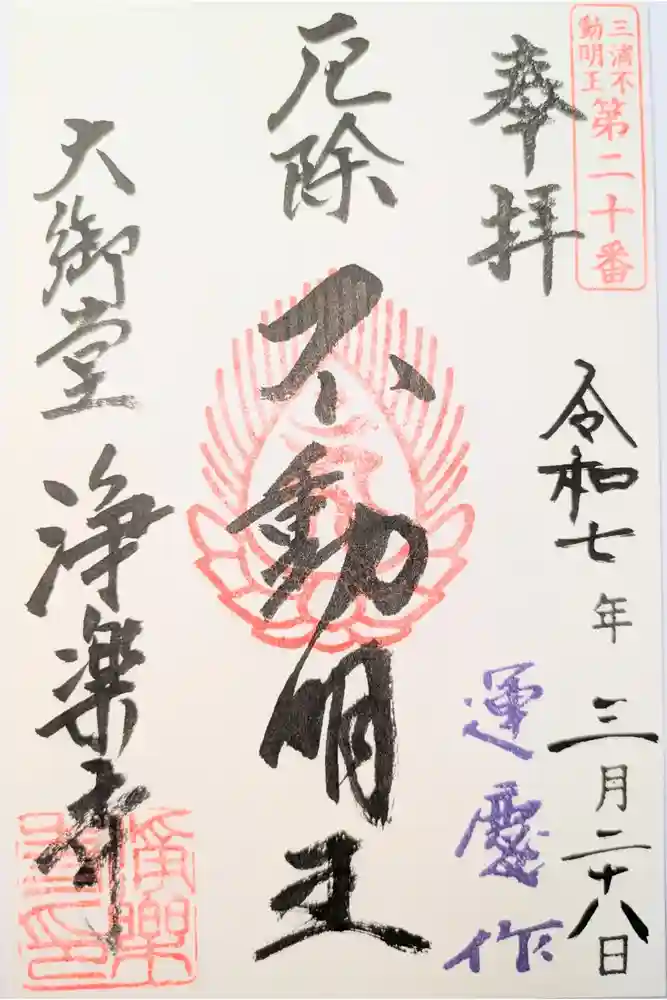 三浦不
動明王
第二十番
奉拝
令和七年三月二十八日
運慶作
厄除
不動明王
大御堂
浄楽寺